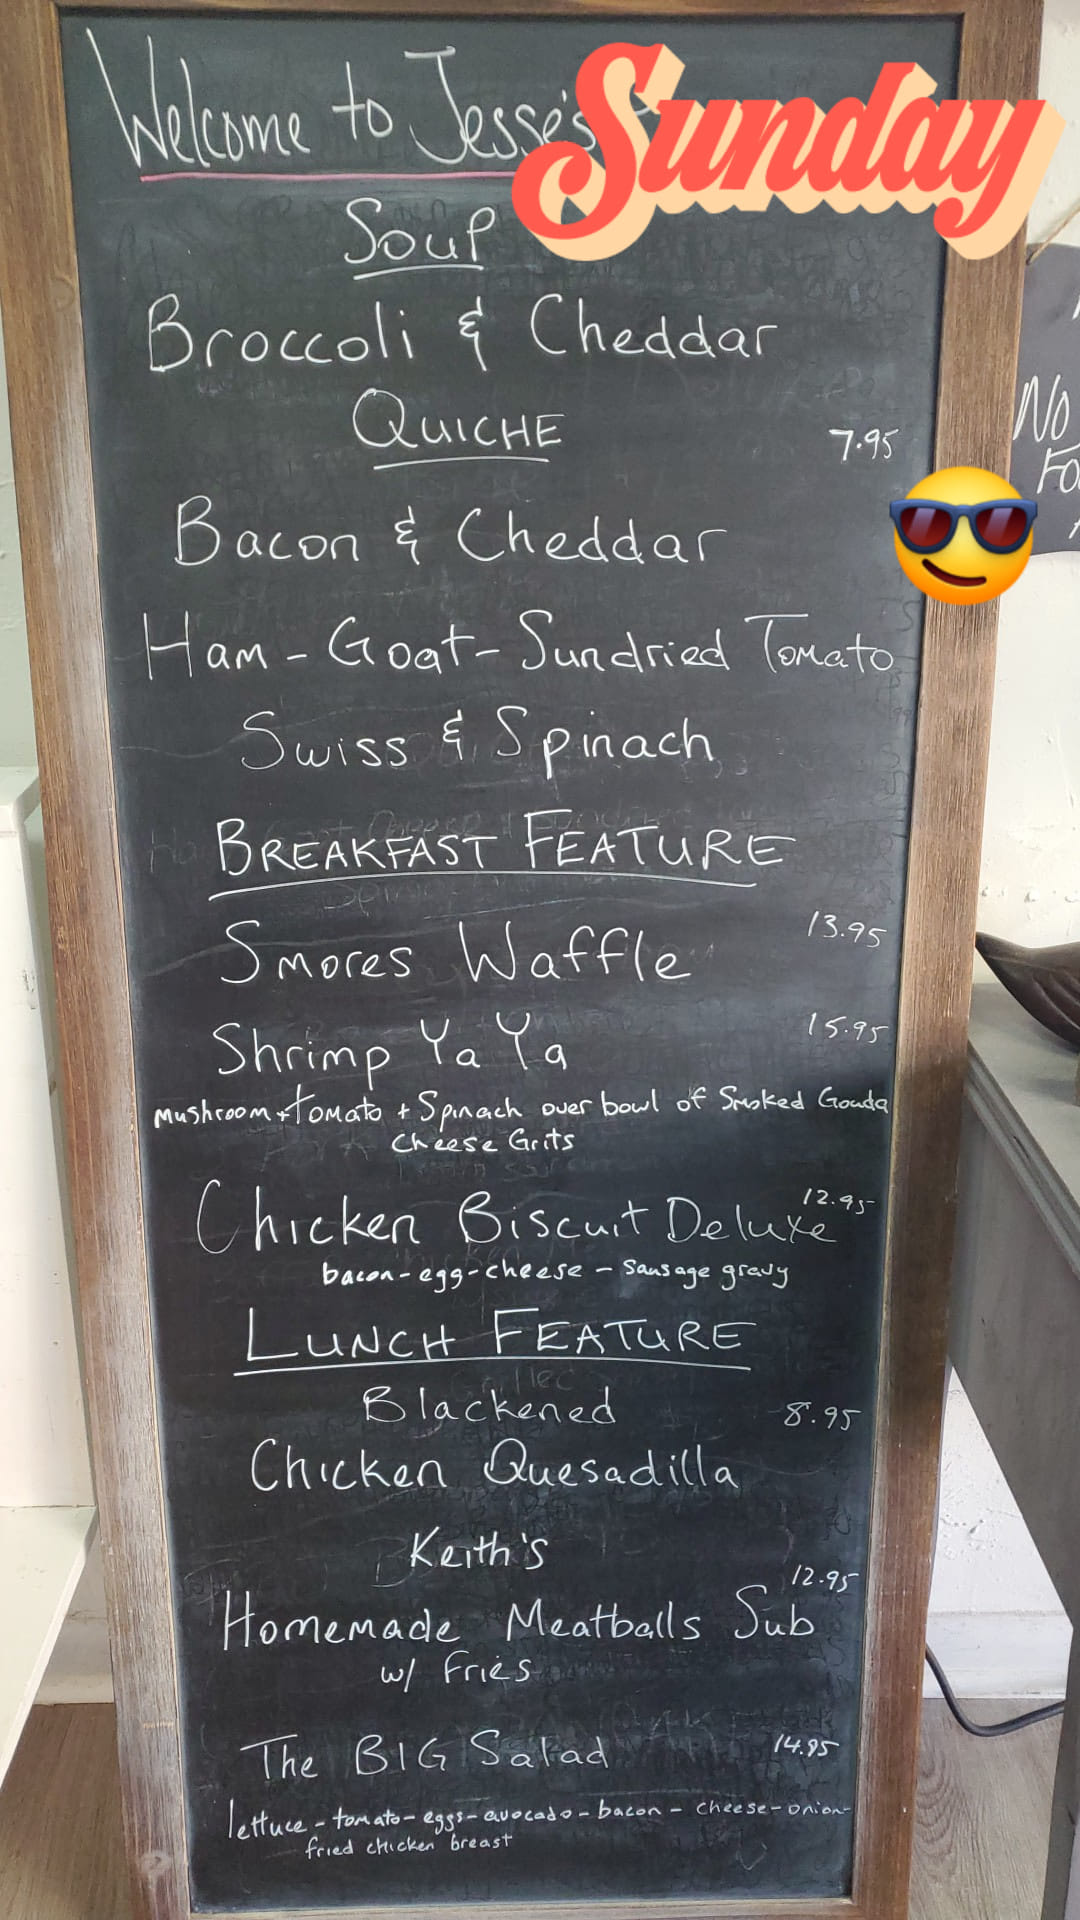 Welcome to Jesse's
Sunday
Soup
Broccoli & Cheddar
QUICHE 7.95
Bacon & Cheddar
Ham - Goat - Sundried Tomato
Swiss & Spinach
BREAKFAST FEATURE
Smores Waffle 13.95
Shrimp Ya Ya 15.95
mushroom + tomato + Spinach over bowl of Smoked Gouda
Cheese Grits
Chicken Biscuit Deluxe 12.95
bacon - egg - cheese - Sausage gravy
LUNCH FEATURE
Blackened 8.95
Chicken Quesadilla
Keith's
Homemade Meatballs Sub 12.95
w/ Fries
The BIG Salad 14.95
lettuce - tomato - eggs - avocado - bacon - cheese - onion -
fried chicken breast
No